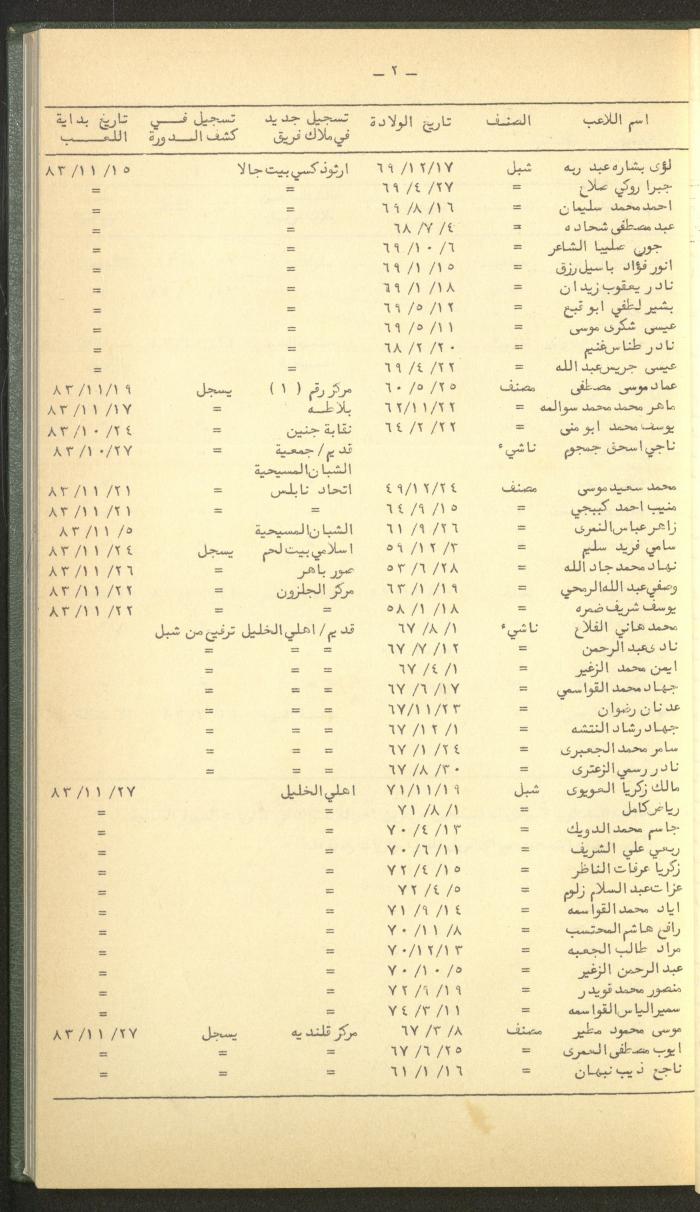 – ٢ –
اسم اللاعب الصنف تاريخ الولادة تسجيل جديد تسجيل فـــي تاريخ بداية
في ملاك فريق كشف الــدورة اللعـــــب
لؤى بشاره عبد ربه شبل ٦٩/١٢/١٧ ارثوذكسي بيت جالا ٨٣/١١/١٥
جبرا روكي صلاح = ٦٩/٤/٢٧ = =
احمد محمد سليمان = ٦٩/٨/١٦ = =
عبد مصطفى شحاده = ٦٨/٧/٤ = =
جون صليبا الشاعر = ٦٩/١٠/٦ = =
انور فؤاد باسيل رزق = ٦٩/١/١٥ = =
نادر يعقوب زيدان = ٦٩/١/١٨ = =
بشير لطفي ابو قبع = ٦٩/٥/١٢ = =
عيسى شكرى موسى = ٦٩/٥/١١ = =
نادر طناس غنيم = ٦٨/٢/٢٠ = =
عيسى جريس عبد الله = ٦٩/٤/٢٢ = =
عماد موسى مصطفى مصنف ٦٠/٥/٢٥ مركز رقم (١) يسجل ٨٣/١١/١٩
ماهر محمد محمد سوالمه = ٦٢/١١/٢٢ بلاطــه = ٨٣/١١/١٧
يوسف محمد ابو منى = ٦٤/٢/٢٢ نقابة جنين = ٨٣/١٠/٢٤
ناجي اسحق جمجوم ناشيء قديم/جمعية = ٨٣/١٠/٢٧
الشبان المسيحية
محمد سعيد موسى مصنف ٤٩/١٢/٢٤ اتحاد نابلس = ٨٣/١١/٢١
منيب احمد كبيجي = ٦٤/٩/١٥ = = ٨٣/١١/٢١
زاهر عباس النمرى = ٦١/٩/٢٦ الشبان المسيحية ٨٣/١١/٥
سامي فريد سليم = ٥٩/١٢/٣ اسلامي بيت لحم يسجل ٨٣/١١/٢٤
نهاد محمد جاد الله = ٥٣/٦/٢٨ صور باهر = ٨٣/١١/٢٦
وصفي عبد الله الرمحي = ٦٣/١/١٩ مركز الجلزون = ٨٣/١١/٢٢
يوسف شريف ضمره = ٥٨/١/١٨ = = ٨٣/١١/٢٢
محمد هاني الفلاح ناشيء ٦٧/٨/١ قديم/اهلي الخليل ترفيع من شبل
نادى عبد الرحمن = ٦٧/٧/١٢ = = =
ايمن محمد الزغير = ٦٧/٤/١ = = =
جهاد محمد القواسمي = ٦٧/٦/١٧ = = =
عدنان رضوان = ٦٧/١١/٢٣ = = =
جهاد رشاد النتشه = ٦٧/١٢/١ = = =
سامر محمد الجعبرى = ٦٧/١/٢٤ = = =
نادر رسمي الزعترى = ٦٧/٨/٣٠ = = =
مالك زكريا العويوى شبل ٧١/١١/١٩ اهلي الخليل ٨٣/١١/٢٧
رياض كامل = ٧١/٨/١ = =
جاسم محمد الدويك = ٧٠/٤/١٣ = =
ربعي علي الشريف = ٧٠/٦/١١ = =
زكريا عرفات الناظر = ٧٢/٤/١٥ = =
عزات عبد السلام زلوم = ٧٢/٤/٥ = =
اياد محمد القواسمه = ٧١/٩/١٤ = =
رافع هاشم المحتسب = ٧٠/١١/٨ = =
مراد طالب الجعبه = ٧٠/١٢/١٣ = =
عبد الرحمن الزغير = ٧٠/١٠/٥ = =
منصور محمد قويدر = ٧٢/٩/١٩ = =
سمير الياس القواسمه = ٧٤/٣/١١ = =
موسى محمود مطير مصنف ٦٧/٣/٨ مركز قلنديه يسجل ٨٣/١١/٢٧
ايوب مصطفى العمرى = ٦٧/٦/٢٥ = = =
ناجح ذيب نبهان = ٦١/١/١٦ = = =